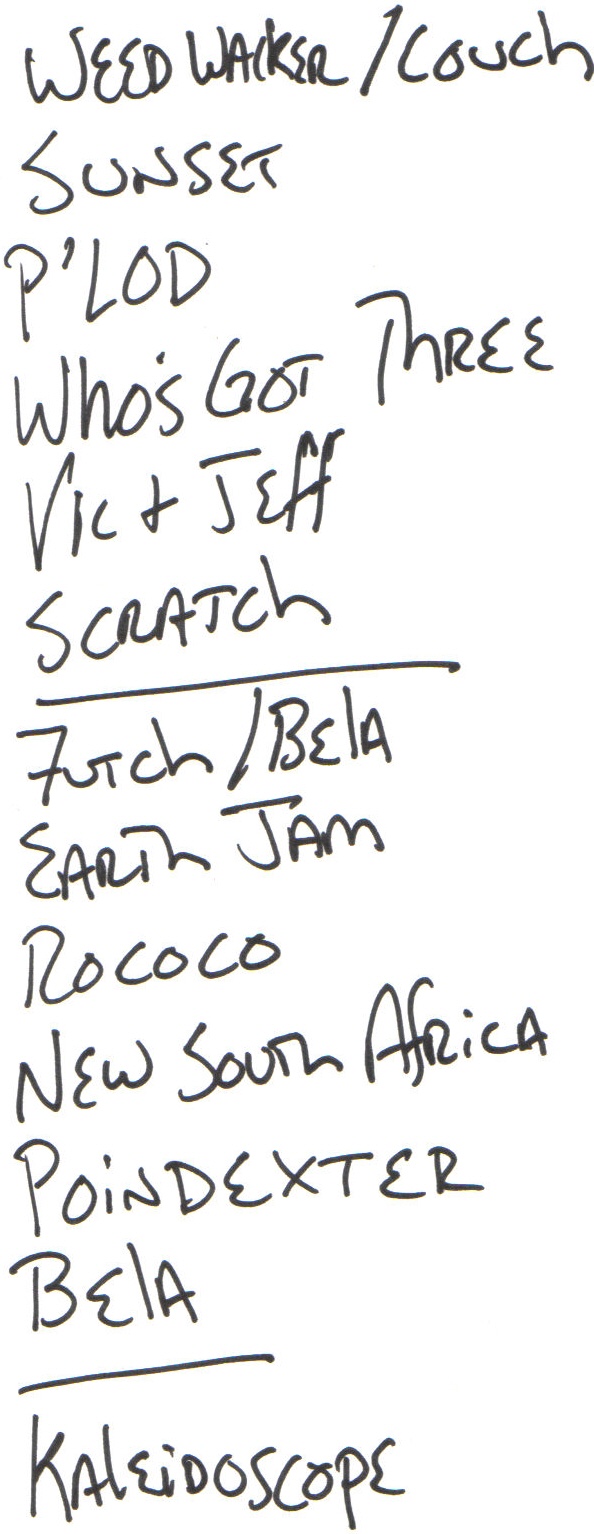 WEED WACKER / COUCH
SUNSET
P'LOD
WHO'S GOT THREE
VIC + JEFF
SCRATCH
FUTCH / BELA
EARTH JAM
ROCOCO
NEW SOUTH AFRICA
POINDEXTER
BELA
KALEIDOSCOPE